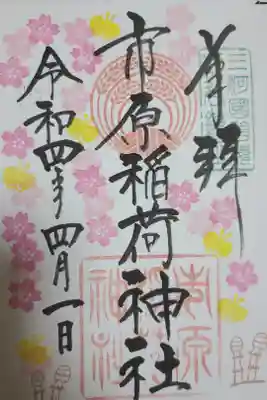 奉拝
三河國
市原稲荷神社
令和四年四月一日
市原稲荷神社